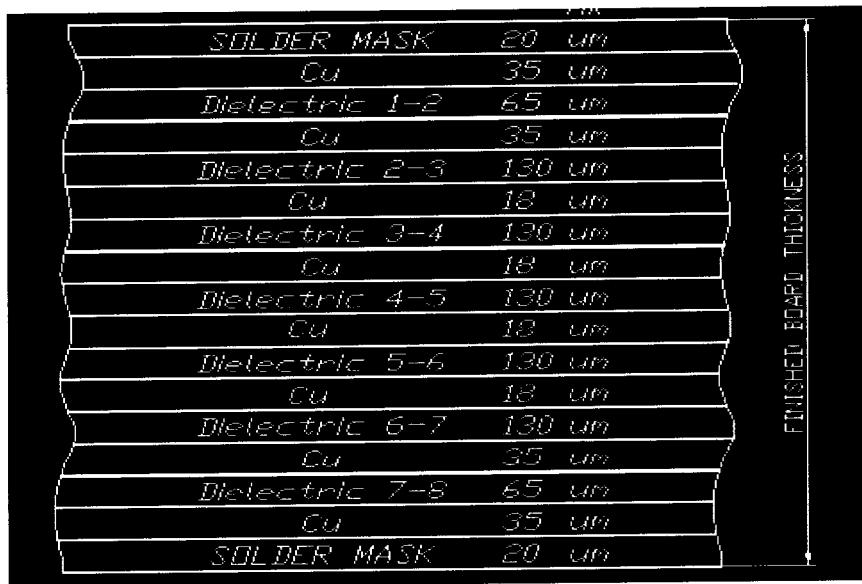 SOLDER MASK 20 um
Cu 35 um
Dielectric 1-2 65 um
Cu 35 um
Dielectric 2-3 130 um
Cu 18 um
Dielectric 3-4 130 um
Cu 18 um
Dielectric 4-5 130 um
Cu 18 um
Dielectric 5-6 130 um
Cu 18 um
Dielectric 6-7 130 um
Cu 35 um
Dielectric 7-8 65 um
Cu 35 um
SOLDER MASK 20 um
FINISHED BOARD THICKNESS